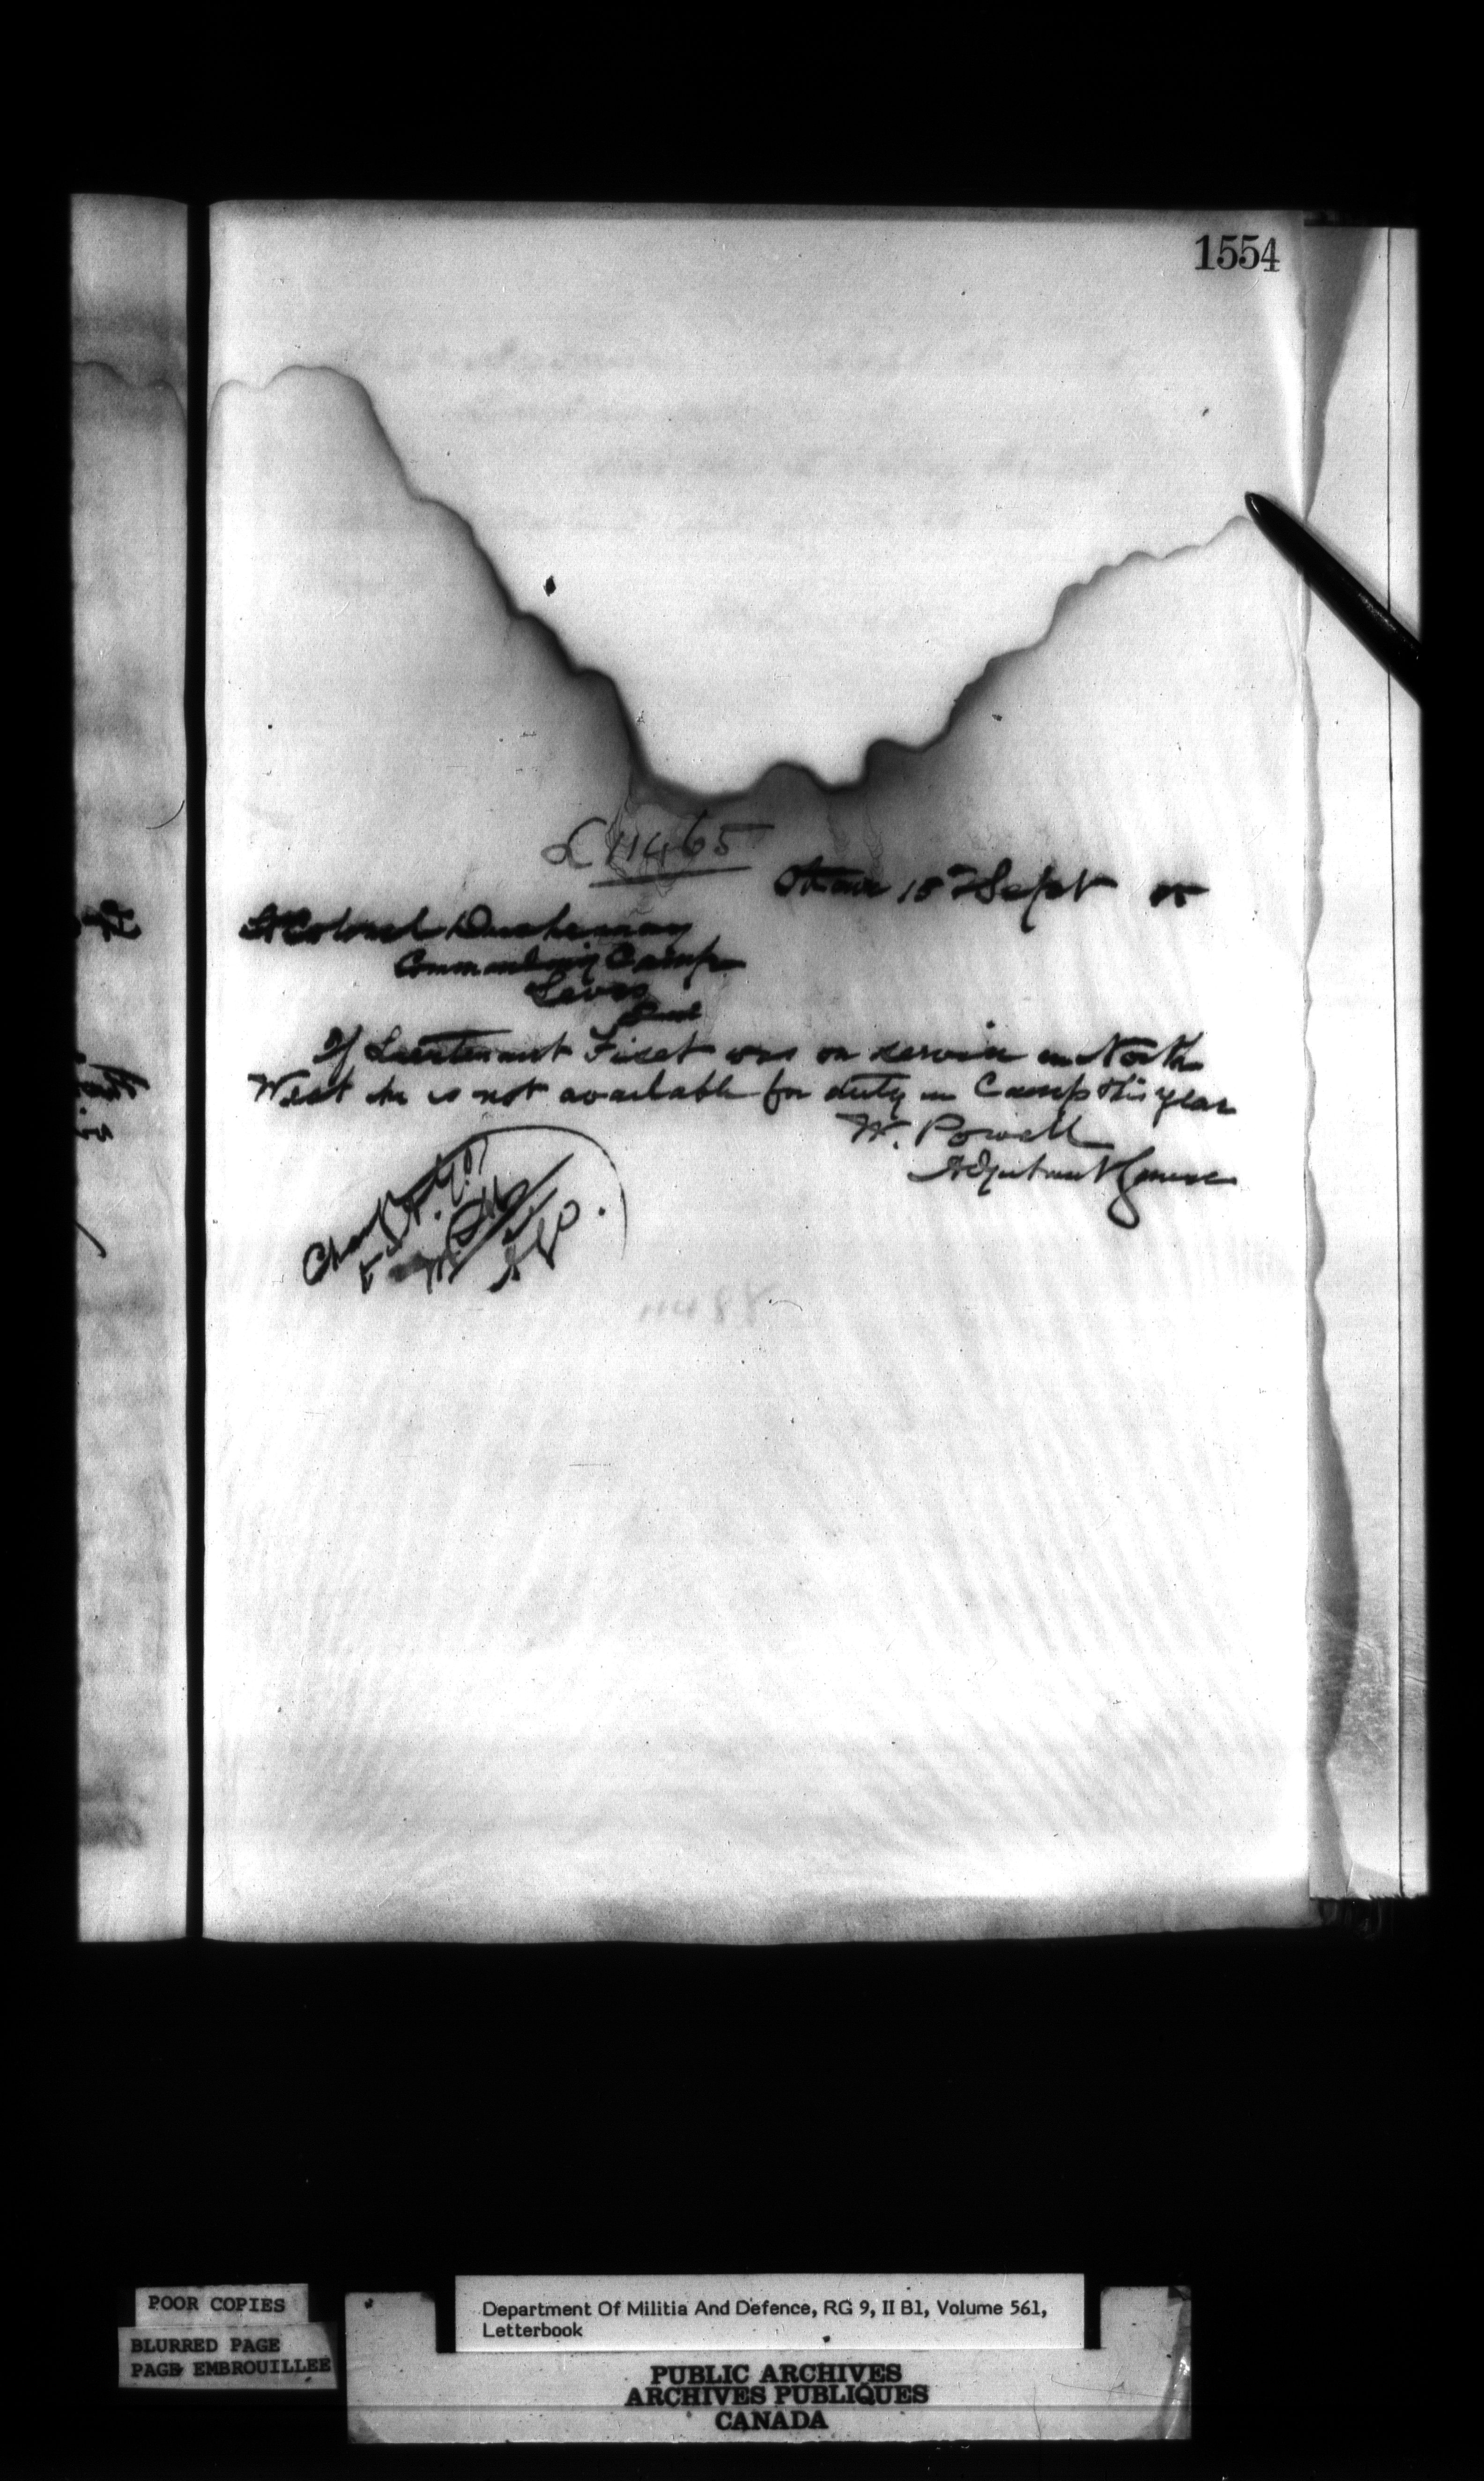 1554
11465
Ottawa 18 Sept 85
Lt Colonel Duchesnay
Commanding Camp
Levis
If Lieutenant Fiset was on service in North
West he is not available for duty in Camp this year
W. Powell
Adjutant General
Charge
11488
POOR COPIES
BLURRED PAGE
PAGE EMBROUILLEE
Department Of Militia And Defence, RG 9, II B1, Volume 561,
Letterbook
PUBLIC ARCHIVES
ARCHIVES PUBLIQUES
CANADA